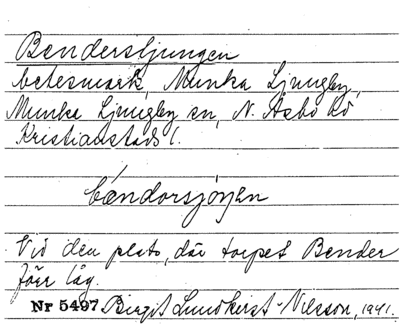 Bendersljungen
betesmark, Munka Ljungby,
Munka Ljungby sn, N. Åsbo hd
Kristianstads l.
Vid den plats, där torpet Bender
förr låg.
Nr 5497 Birgit Lundkvist-Nilsson, 1941.